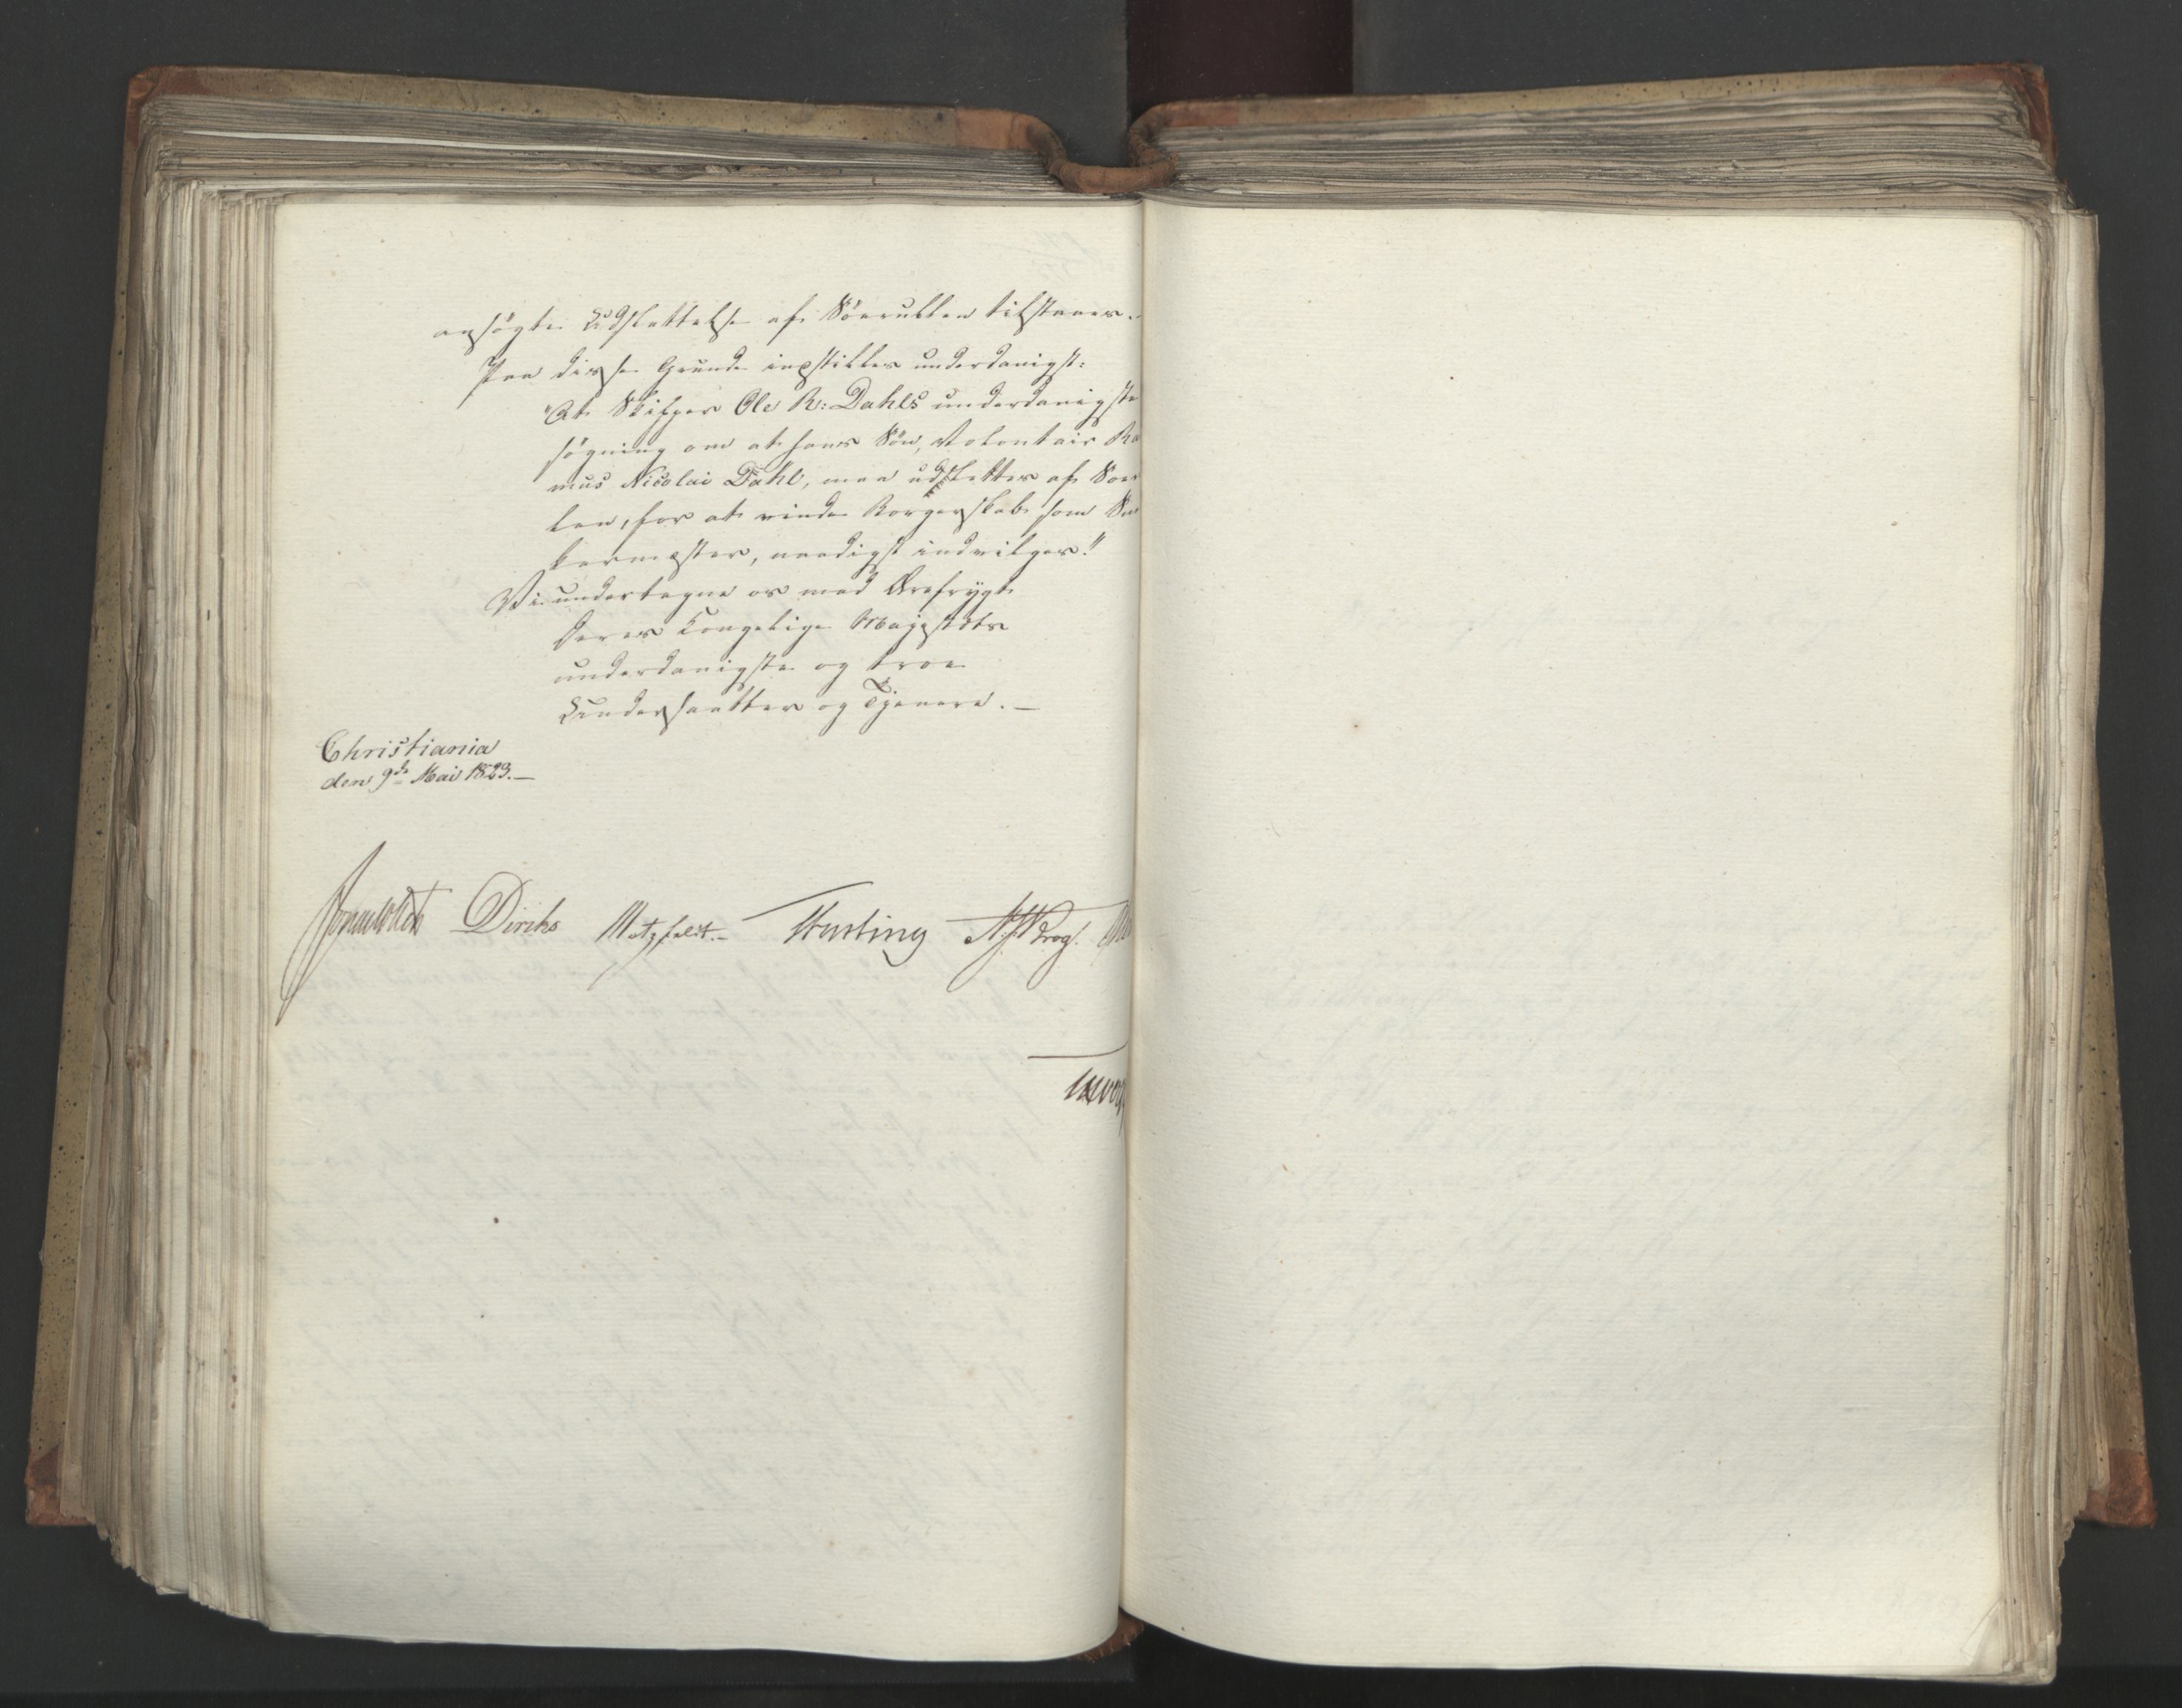 ansøgte Udslettelse af Søerullen tilstaaes.
Paa disse Grunde indstilles underdanigst:
"At Skipper Ole R: Dahls underdanigste
søgning om at hans Søn, Volontair Ra
mus Nicolai Dahl, maa udslettes af Søer
len, for at vinde Borgerskab som
kermester, naadigst indvilges."
Vi undertegne os med Ærefrygt
Deres Kongelige Majestæts
underdanigste og troe
Undersaatter og Tjenere. —
Christiania
den 9de Mai 1823. —
Diriks Motzfeldt. — Krog.